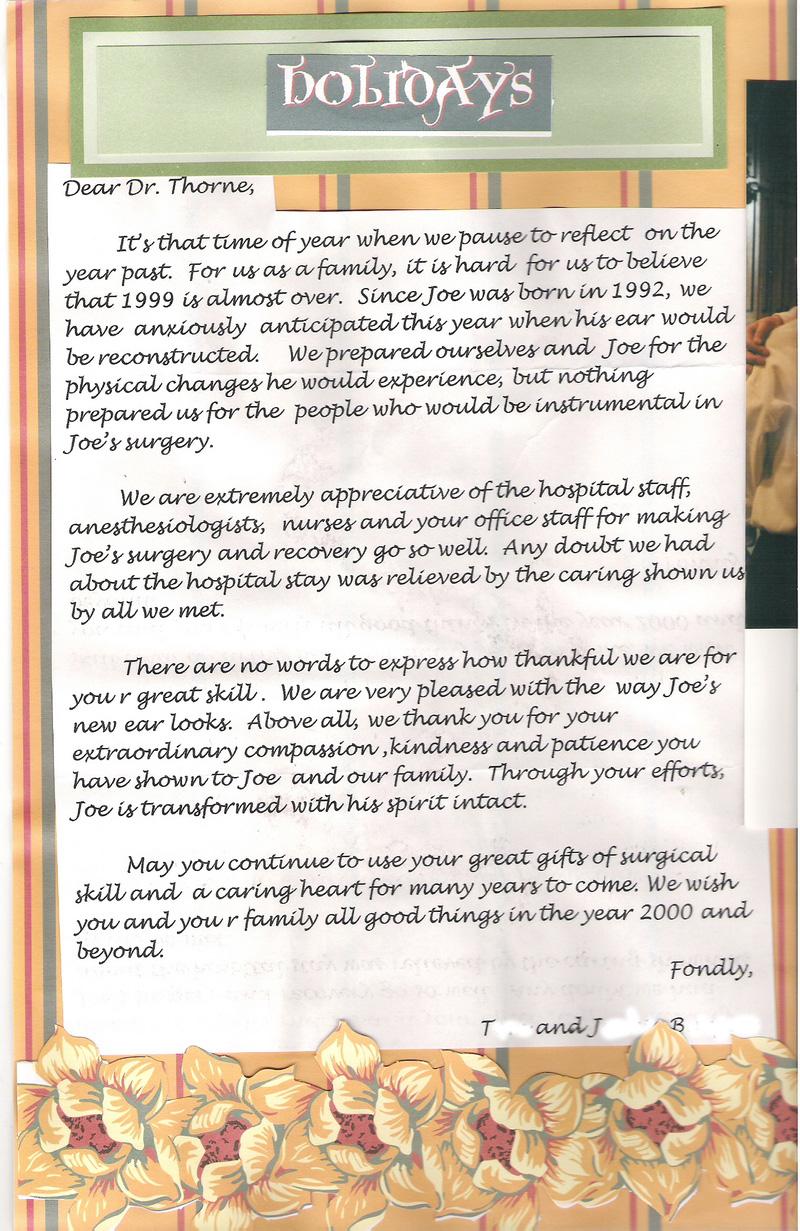 holidays
Dear Dr. Thorne,
It's that time of year when we pause to reflect on the
year past. For us as a family, it is hard for us to believe
that 1999 is almost over. Since Joe was born in 1992, we
have anxiously anticipated this year when his ear would
be reconstructed. We prepared ourselves and Joe for the
physical changes he would experience, but nothing
prepared us for the people who would be instrumental in
Joe's surgery.
We are extremely appreciative of the hospital staff,
anesthesiologists, nurses and your office staff for making
Joe's surgery and recovery go so well. Any doubt we had
about the hospital stay was relieved by the caring shown us
by all we met.
There are no words to express how thankful we are for
you r great skill . We are very pleased with the way Joe's
new ear looks. Above all, we thank you for your
extraordinary compassion ,kindness and patience you
have shown to Joe and our family. Through your efforts,
Joe is transformed with his spirit intact.
May you continue to use your great gifts of surgical
skill and a caring heart for many years to come. We wish
you and you r family all good things in the year 2000 and
beyond.
Fondly,
T and J B